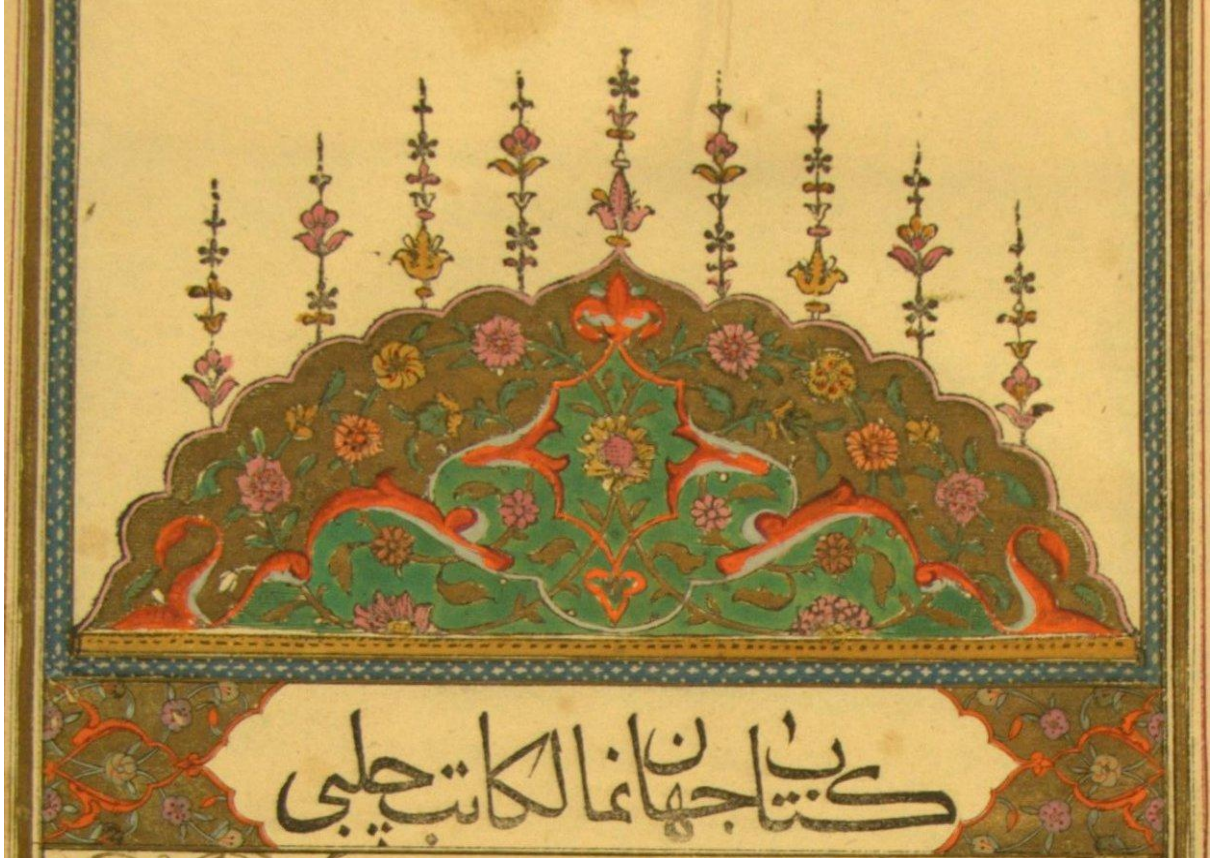 كتاب جهان نما لكاتب چلبی